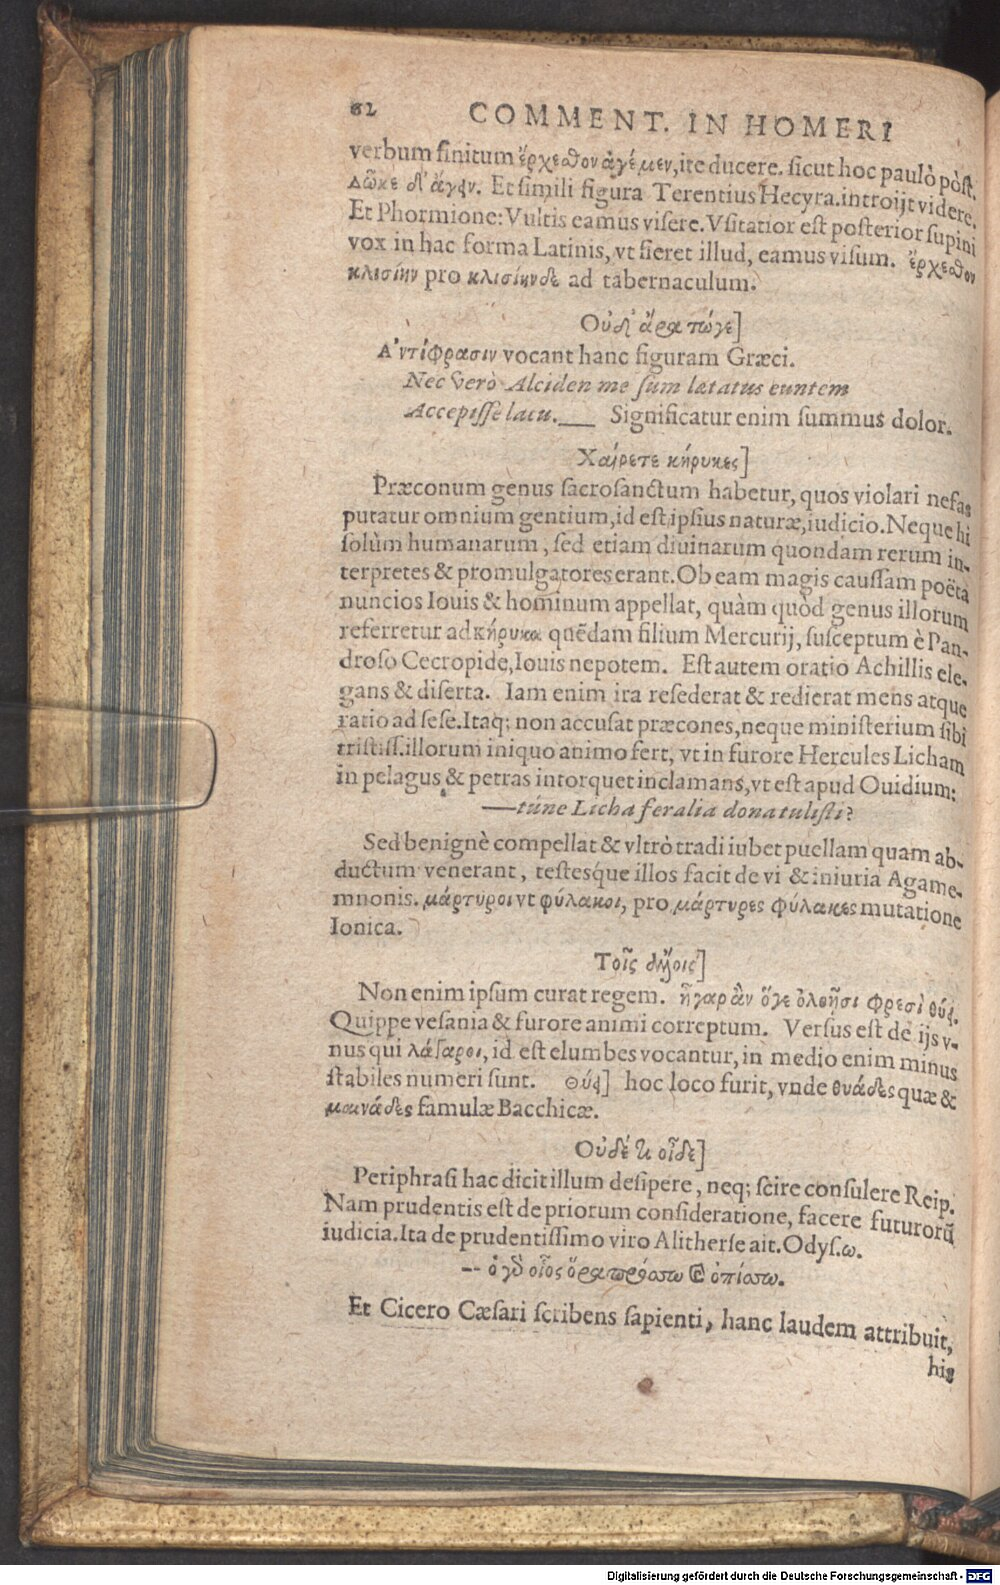 62 COMMENT. IN HOMERI
verbum finitum ἔρχεσθον ἀγέμεν, ite ducere. sicut hoc paulò pòst.
Δῶκε δ' ἄγειν. Et simili figura Terentius Hecyra. introijt videre.
Et Phormione: Vultis eamus visere. Vsitatior est posterior supini
vox in hac forma Latinis, vt fieret illud, eamus visum. ἔρχεσθον
κλισίην pro κλισίηνδε ad tabernaculum.
Οὐδ' ἄρα τώγε]
Ἀντίφρασιν vocant hanc figuram Græci.
Nec verò Alciden me sum lætatus euntem
Accepisse lacu.__ Significatur enim summus dolor.
Χαίρετε κήρυκες]
Præconum genus sacrosanctum habetur, quos violari nefas
putatur omnium gentium, id est ipsius naturæ, iudicio. Neque hi
solùm humanarum, sed etiam diuinarum quondam rerum in-
terpretes & promulgatores erant. Ob eam magis caussam poëta
nuncios Iouis & hominum appellat, quàm quòd genus illorum
referretur ad κήρυκα quẽdam filium Mercurij, susceptum è Pan-
droso Cecropide, Iouis nepotem. Est autem oratio Achillis ele-
gans & diserta. Iam enim ira resederat & redierat mens atque
ratio ad sese. Itaq; non accusat præcones, neque ministerium sibi
tristiss. illorum iniquo animo fert, vt in furore Hercules Licham
in pelagus & petras intorquet inclamans, vt est apud Ouidium:
—túne Licha feralia dona tulisti?
Sed benignè compellat & vltrò tradi iubet puellam quam ab-
ductum venerant, testesque illos facit de vi & iniuria Agame-
mnonis. μάρτυροι vt φύλακοι, pro μάρτυρες φύλακες mutatione
Ionica.
Τοῖς ἄλλοις]
Non enim ipsum curat regem. ἦ γὰρ ἂν ὅγε ὀλοῇσι φρεσὶ θύει.
Quippe vesania & furore animi correptum. Versus est de ijs v-
nus qui λάγαροι, id est elumbes vocantur, in medio enim minus
stabiles numeri sunt. Θύει] hoc loco furit, vnde θυάδες quæ &
μαινάδες famulæ Bacchicæ.
Οὐδέ τι οἶδε]
Periphrasi hac dicit illum desipere, neq; scire consulere Reip.
Nam prudentis est de priorum consideratione, facere futurorũ
iudicia. Ita de prudentissimo viro Alitherse ait. Odys. ω.
-- ὁ γὰρ οἶος ὅρα πρόσσω καὶ ὀπίσσω.
Et Cicero Cæsari scribens sapienti, hanc laudem attribuit,
his
Digitalisierung gefördert durch die Deutsche Forschungsgemeinschaft - DFG